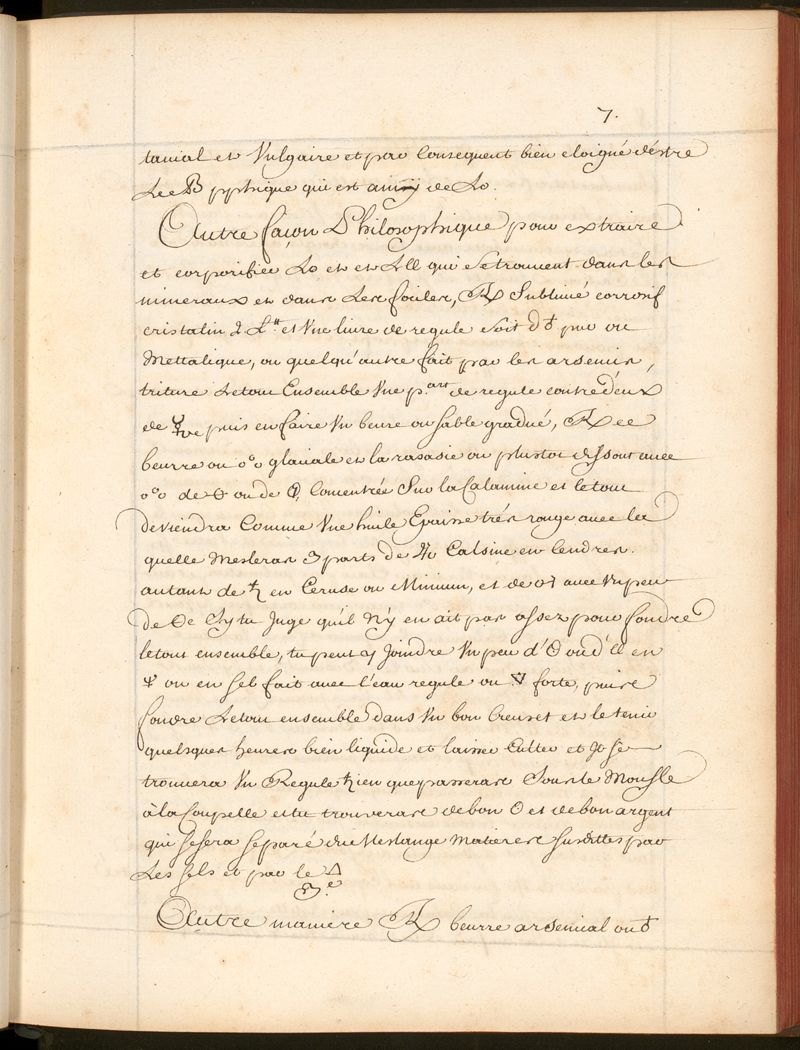 7.
tanial et Vulgaire et par Consequent bien eloigné déstre
Le qui est amy de Lo.
Autre façon Philosophique pour extraire
et corporifier Lo et et Lll qui Se trouvent dans les
mineraux et dans Les Soulex, ℞ Sublimé corrosif
cristalin 2 L.tt et Vne livre de regule soit d'♁ pur ou
Mettalique, ou quelqu'autre fait par les arsenics,
triture Letout Ensemble Vne p.art de regule contre deux
de puis en faire Vn beure ou sable gradué, ℞ ce
beurre ou o°o glaciale et la rasasie ou plustot dissout avec
o°o de ou de Comentrée Sur la Calamine et letout
deviendra Comme Vne huile Epaisse trés rouge avec la
quelle Mesleras 3 parts de Calsiné en Cendres.
autant de ♄ en Ceruse ou Minium, et de avec Vn peu
de Sy tu Juge qu'il n'y en ait pas assez pour fondre
letout ensemble, tu peut y Joindre Vn peu d'O ou d'll en
🜍 ou en sel fait avec l'eau regule ou forte, puis
fondre Letout ensemble dans Vn bon Creuset et le tenir
quelques heures bien liquide et laisse Culter et Jl se
trouvera Vn Regule ♄ien que passeras Sous le Moufle
à la Coupelle et tu trouveras de bon O et de bon argent
qui Se Sera Separé du Meslange Matieres Susdittes par
Les sels et par le △
3.e
Autre maniere ℞ beurre arsenical ou ♁